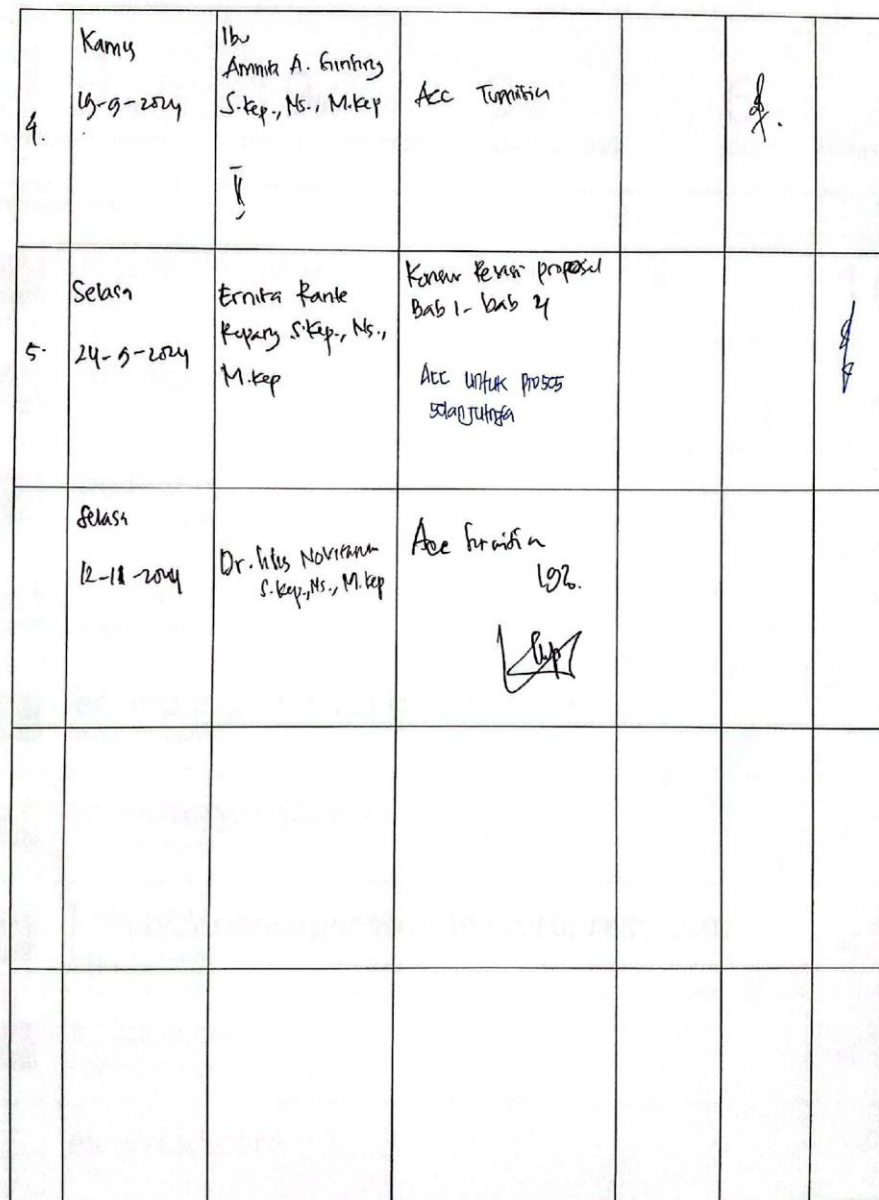 4.
Kamis
19-9-2024
Ibu
Amnita A. Ginting
S.Kep., Ns., M.Kep
Acc Turnitin
5.
Selasa
24-9-2024
Ernita Rante
Rupang S.Kep., Ns.,
M.Kep
Konsul Revisi proposal
Bab 1 - bab 4
Acc untuk proses
selanjutnya
Selasa
12-11-2024
Dr. Novieana
S.Kep., Ns., M.Kep
Acc Turnitin